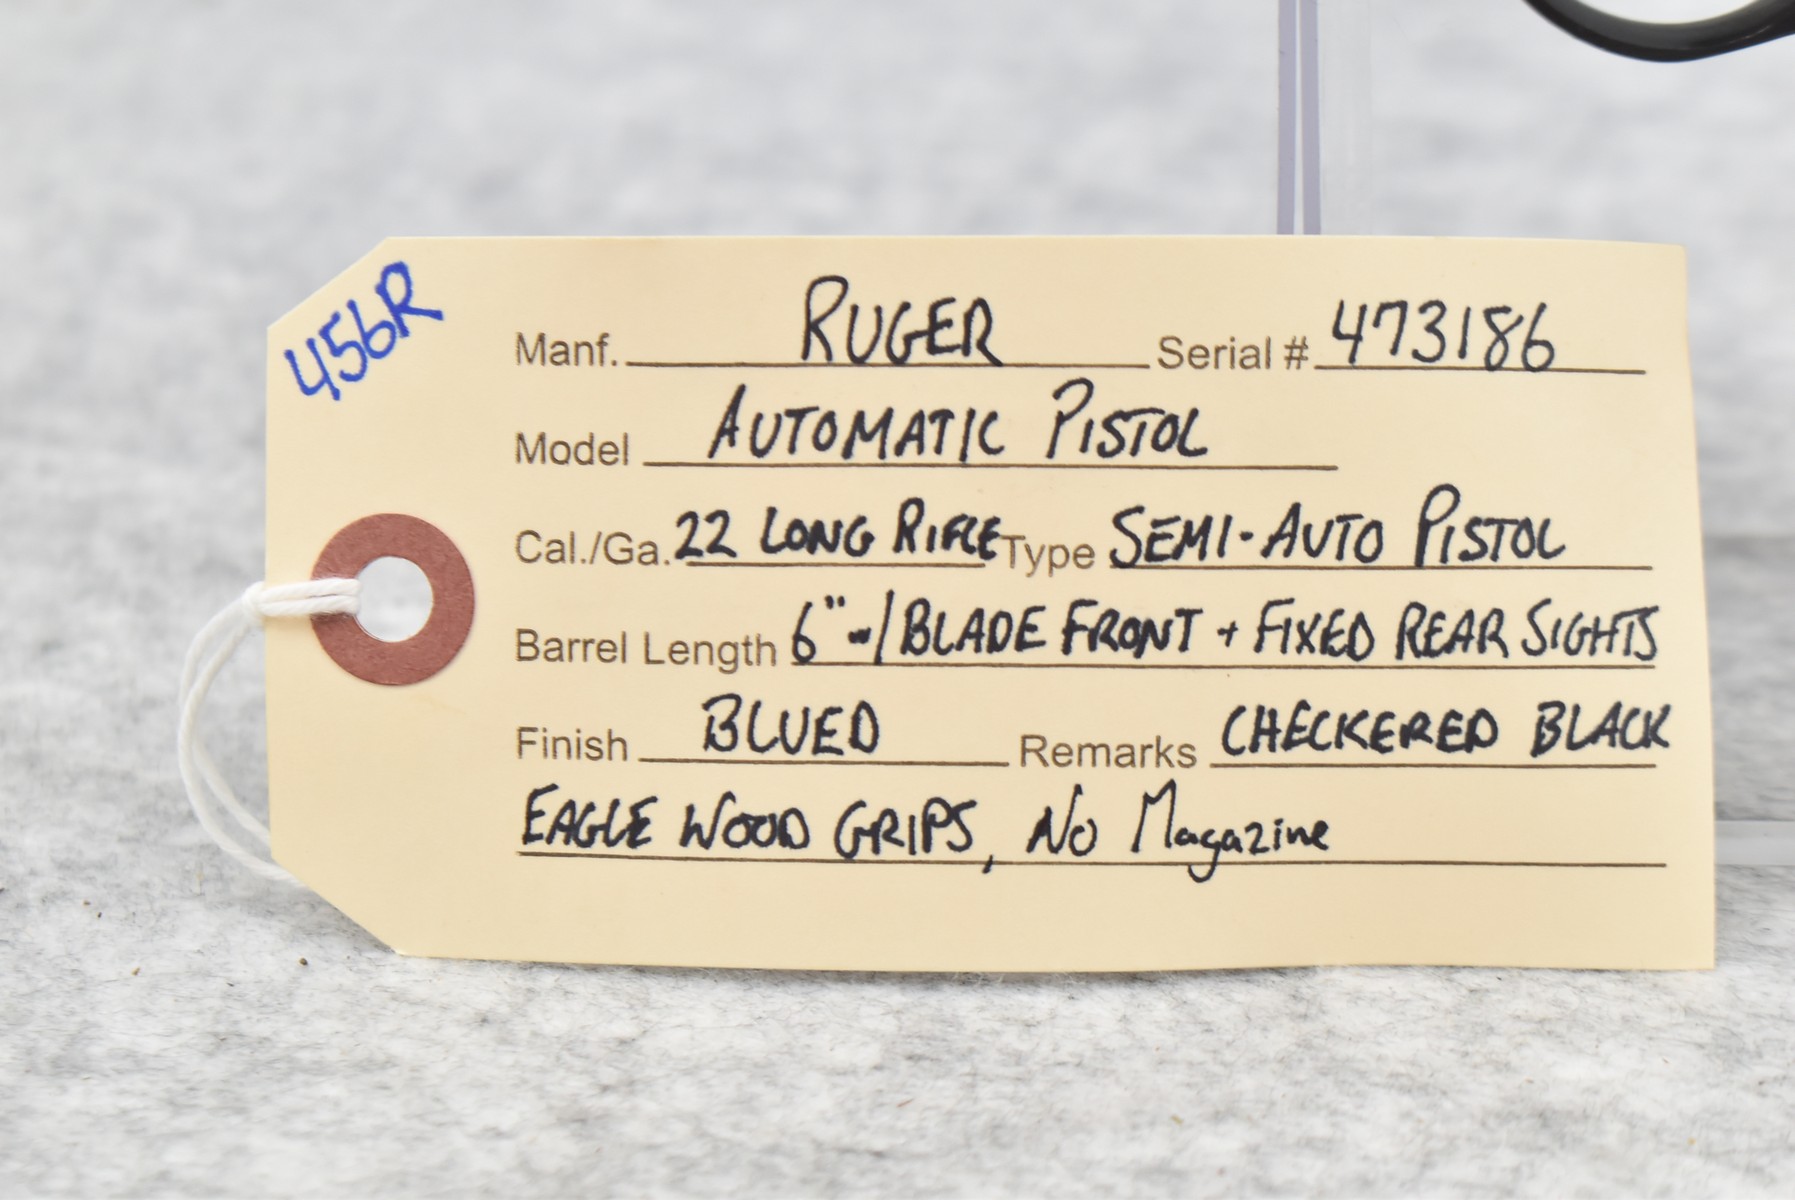 456R
Manf. RUGER Serial # 473186
Model AUTOMATIC PISTOL
Cal./Ga. 22 LONG RIFLE Type SEMI-AUTO PISTOL
Barrel Length 6" w/ BLADE FRONT + FIXED REAR SIGHTS
Finish BLUED Remarks CHECKERED BLACK
EAGLE WOOD GRIPS, NO Magazine